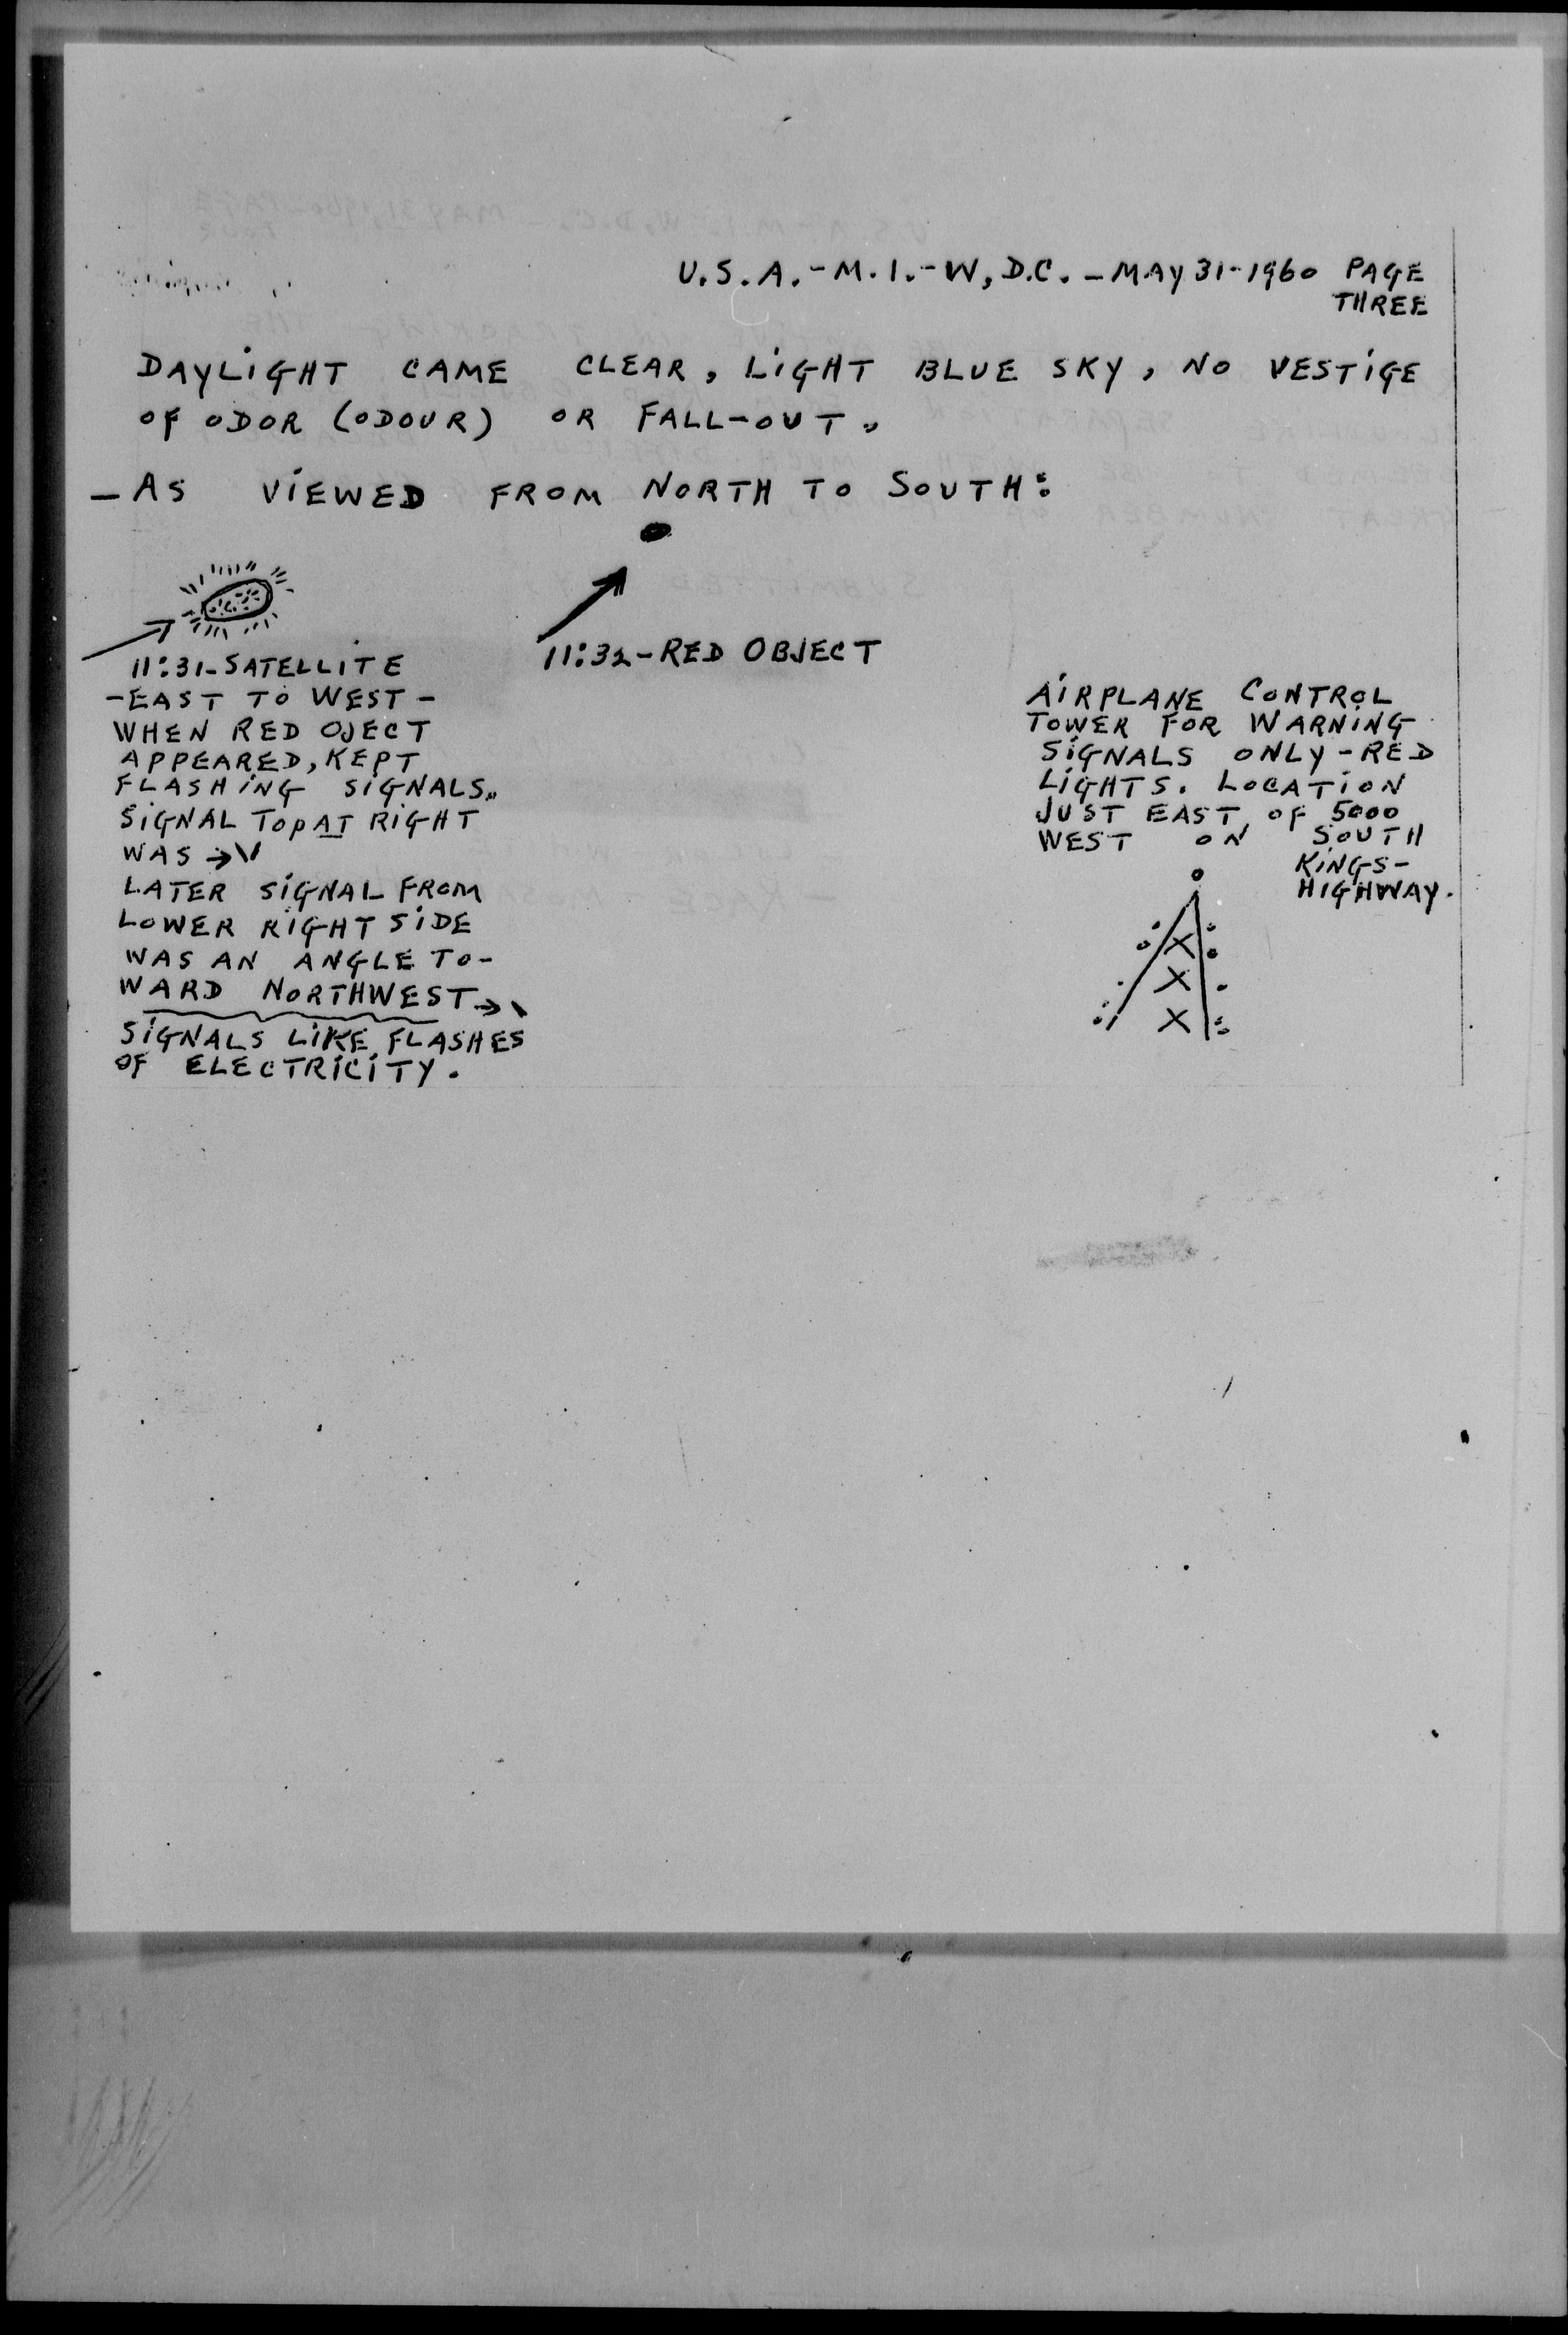 U.S.A.-M.I.-W,D.C. - MAY 31-1960 PAGE
THREE
DAYLIGHT CAME CLEAR, LIGHT BLUE SKY, NO VESTIGE
OF ODOR (ODOUR) OR FALL-OUT.
- AS VIEWED FROM NORTH TO SOUTH:
11:31-SATELLITE
-EAST TO WEST-
WHEN RED OJECT
APPEARED, KEPT
FLASHING SIGNALS.
SIGNAL TOP AT RIGHT
WAS →
LATER SIGNAL FROM
LOWER RIGHT SIDE
WAS AN ANGLE TO-
WARD NORTHWEST →
SIGNALS LIKE FLASHES
OF ELECTRICITY.
11:32-RED OBJECT
AIRPLANE CONTROL
TOWER FOR WARNING
SIGNALS ONLY-RED
LIGHTS. LOCATION
JUST EAST OF 5000
WEST ON SOUTH
KINGS-
HIGHWAY.